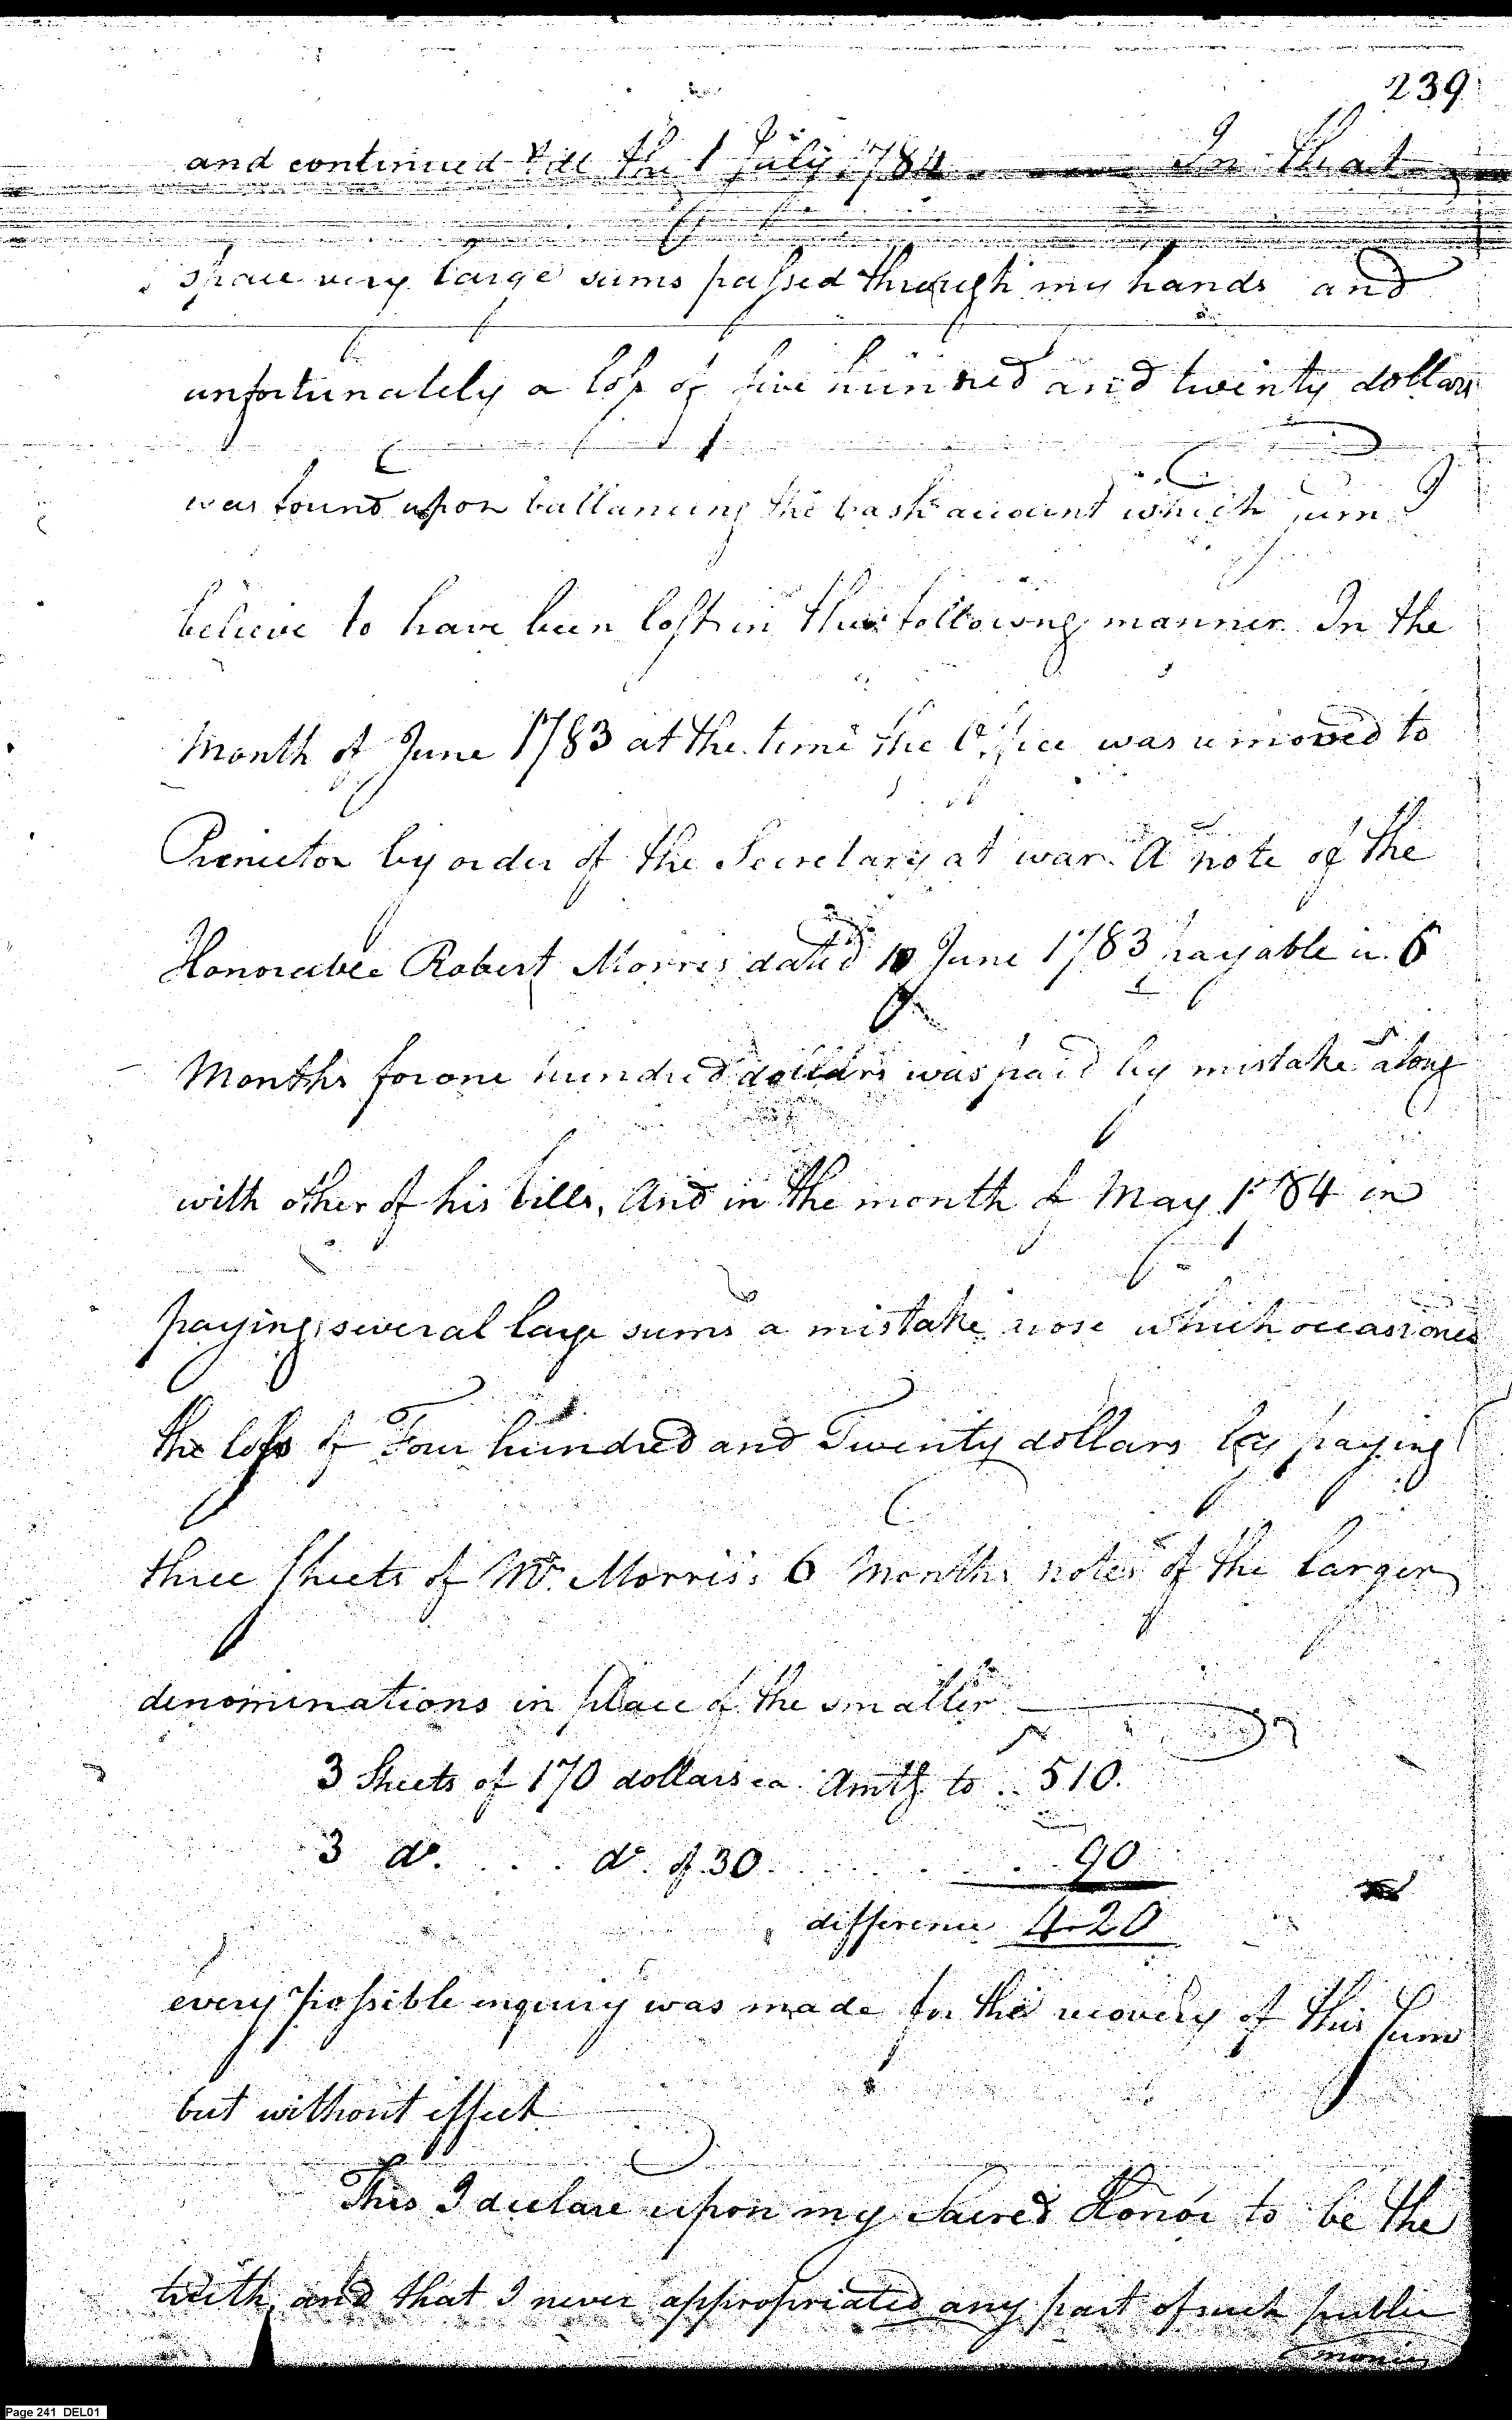 239
and continued till the 1 July 1784 In that
space very large sums passed through my hands and
unfortunately a loss of five hundred and twenty dollars
was found upon ballancing the cash account which sum I
believe to have been lost in the following manner. In the
Month of June 1783 at the time the Office was removed to
Princeton by order of the Secretary at war. A note of the
Honorable Robert Morris dated 10 June 1783 payable in 6
Months for one hundred dollars was paid by mistake along
with other of his bills, And in the month of May 1784 in
paying several large sums a mistake arose which occasioned
the loss of Four hundred and Twenty dollars by paying
three sheets of Mr. Morris's 6 Months notes of the larger
denominations in place of the smaller
3 Sheets of 170 dollars ea. Amtg to .. 510.
3 do. . . . do. of 30 . . . . . . . 90
difference 420
every possible inquiry was made for the recovery of this sum
but without effect
This I declare upon my Sacred Honor to be the
truth, and that I never appropriated any part of such public
monies
Page 241 DEL01